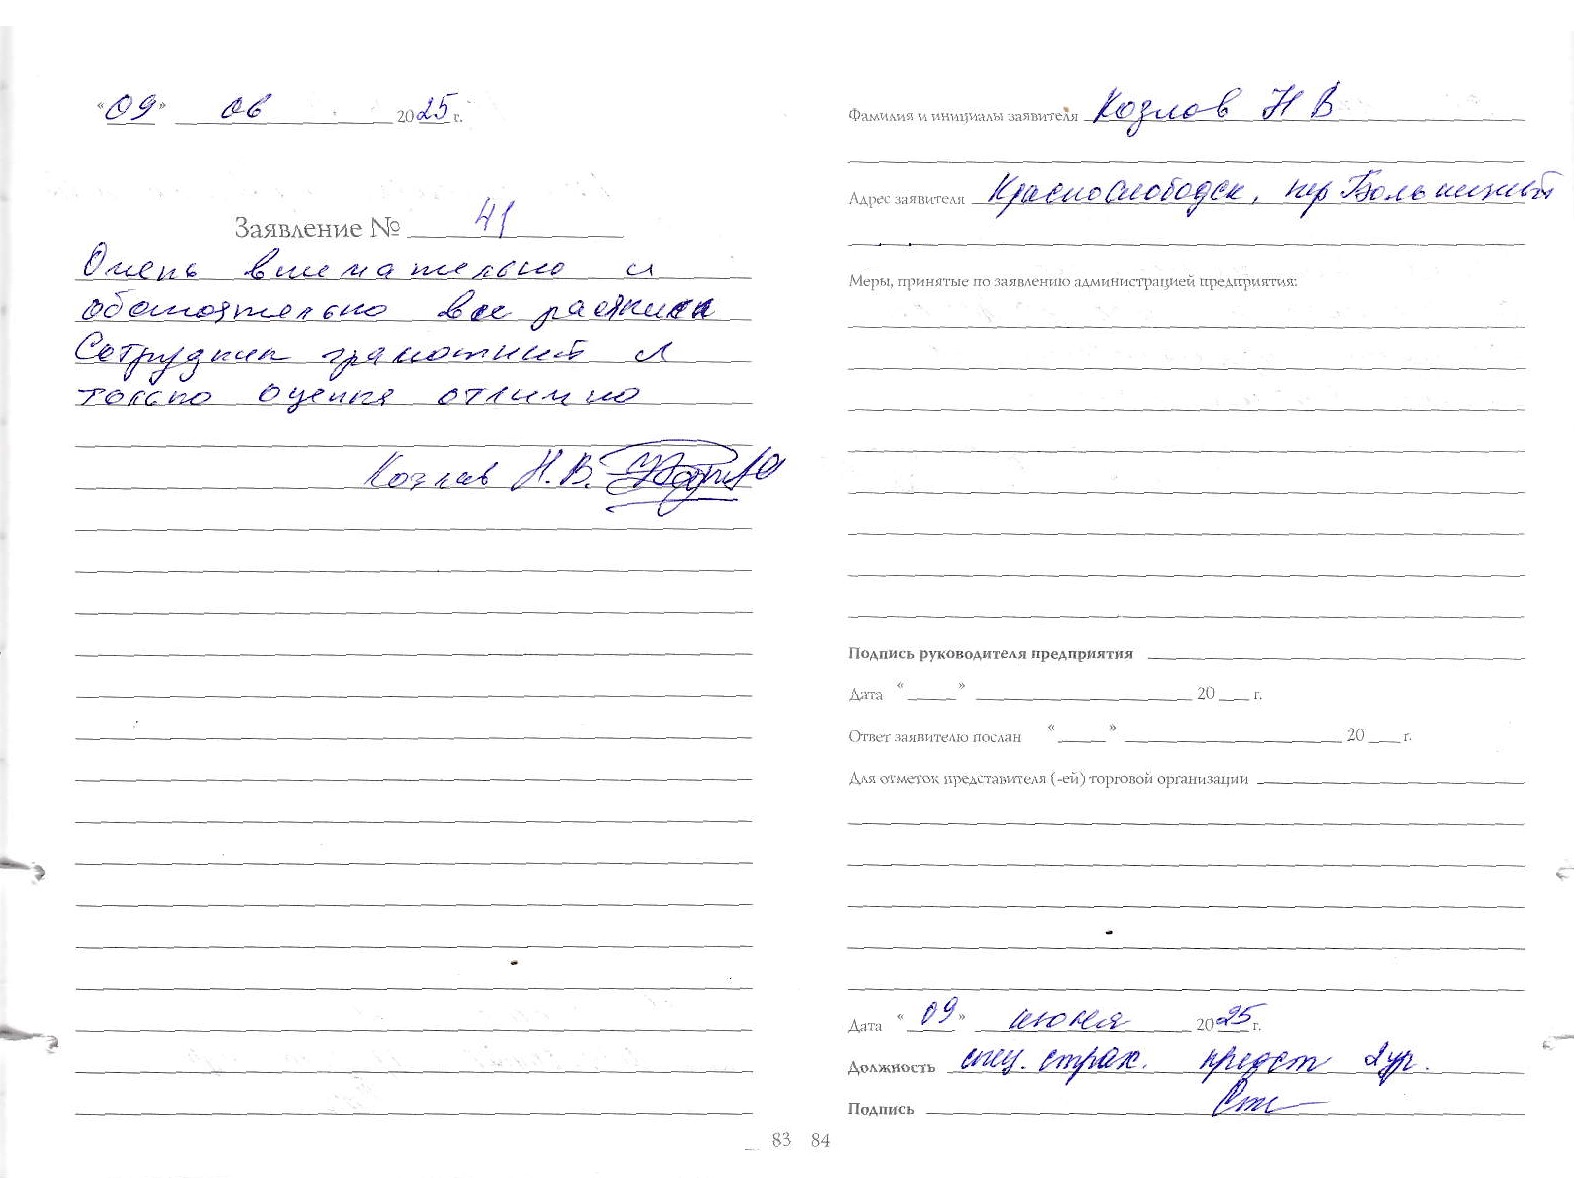 «09» 06 2025 г.
Заявление № 41
Очень внимательно и
обстоятельно все
Сотрудник грамотный и
только оценка отлично
Козлов Н.В.
83
Фамилия и инициалы заявителя Козлов Н В
Адрес заявителя Краснослободск, пер Больничный
Меры, принятые по заявлению администрацией предприятия:
Подпись руководителя предприятия
Дата « » 20 г.
Ответ заявителю послан « » 20 г.
Для отметок представителя (-ей) торговой организации
Дата «09» июня 2025 г.
Должность спец. страх. предст 2 ур.
Подпись
84